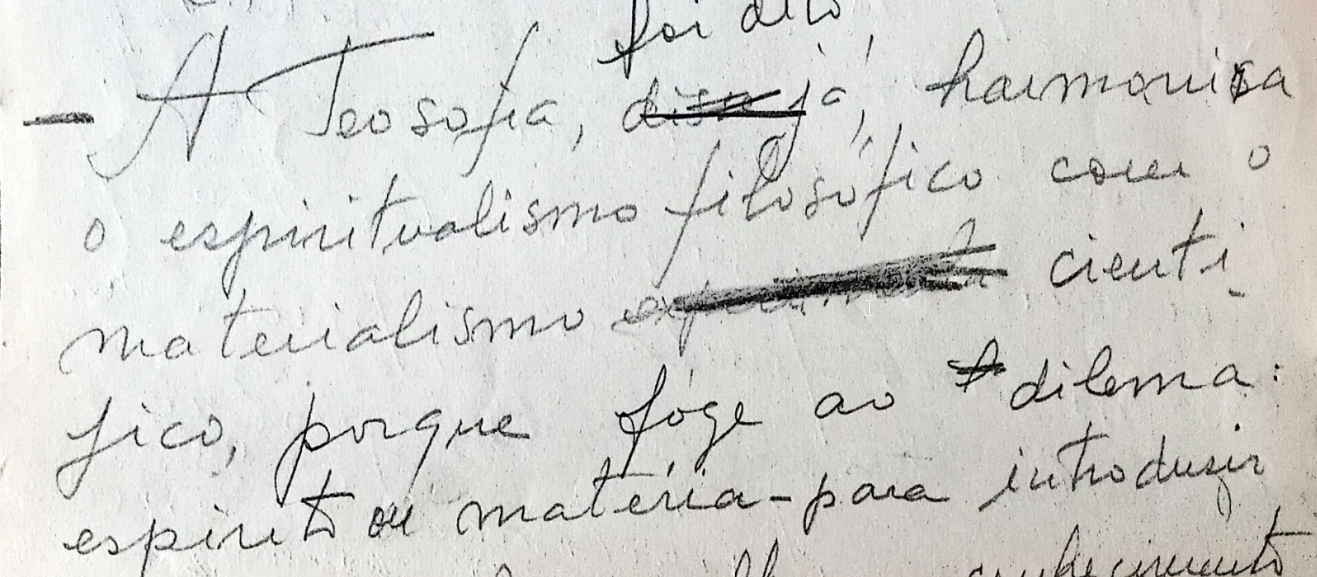 foi dito
— A Teosofia, já, harmonisa
o espiritualismo filosófico com o
materialismo cienti
fico, porque foge ao dilema:
espirito ou matéria - para introduzir
conhecimento